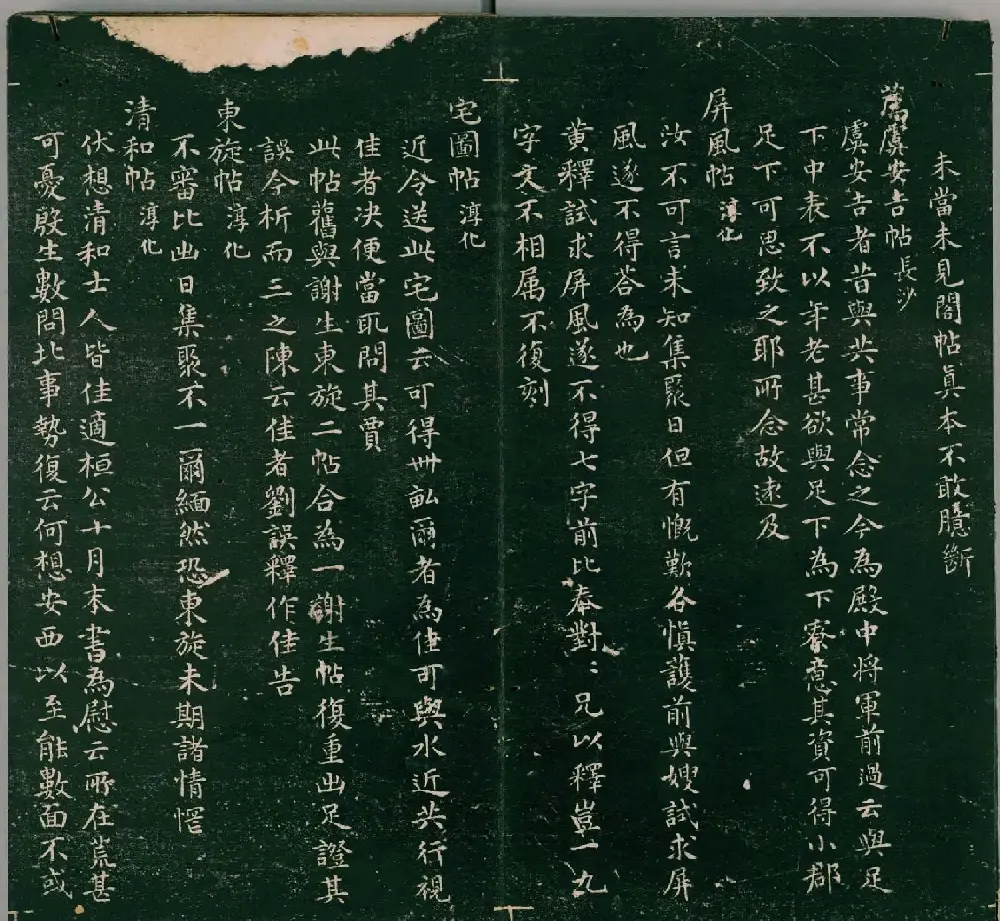 未當未見閣帖真本不敢臆斷
薦虞安吉帖 長沙
虞安吉者昔與共事常念之今為殿中将軍前過云與足
下中表不以年老甚欲與足下為下寮意其資可得小郡
足下可思致之耶所念故遠及
屏風帖 淳化
汝不可言未知集聚日但有慨歎各慎護前與嫂試求屏
風遂不得荅為也
黄釋試求屏風遂不得七字前比奉對〻兄以釋豈一九
字文不相属不復刻
宅圖帖 淳化
近令送此宅圖云可得卌畝爾者為佳可與水近共行視
佳者决便當取問其賈
此帖舊與謝生東旋二帖合為一謝生帖復重出足證其
誤今析而三之陳云佳者劉誤釋作佳告
東旋帖 淳化
不審比出日集聚不一爾緬然恐東旋未期諸情惽
清和帖 淳化
伏想清和士人皆佳適桓公十月末書為慰云所在荒甚
可憂殷生數問北事勢復云何想安西以至能數面不或